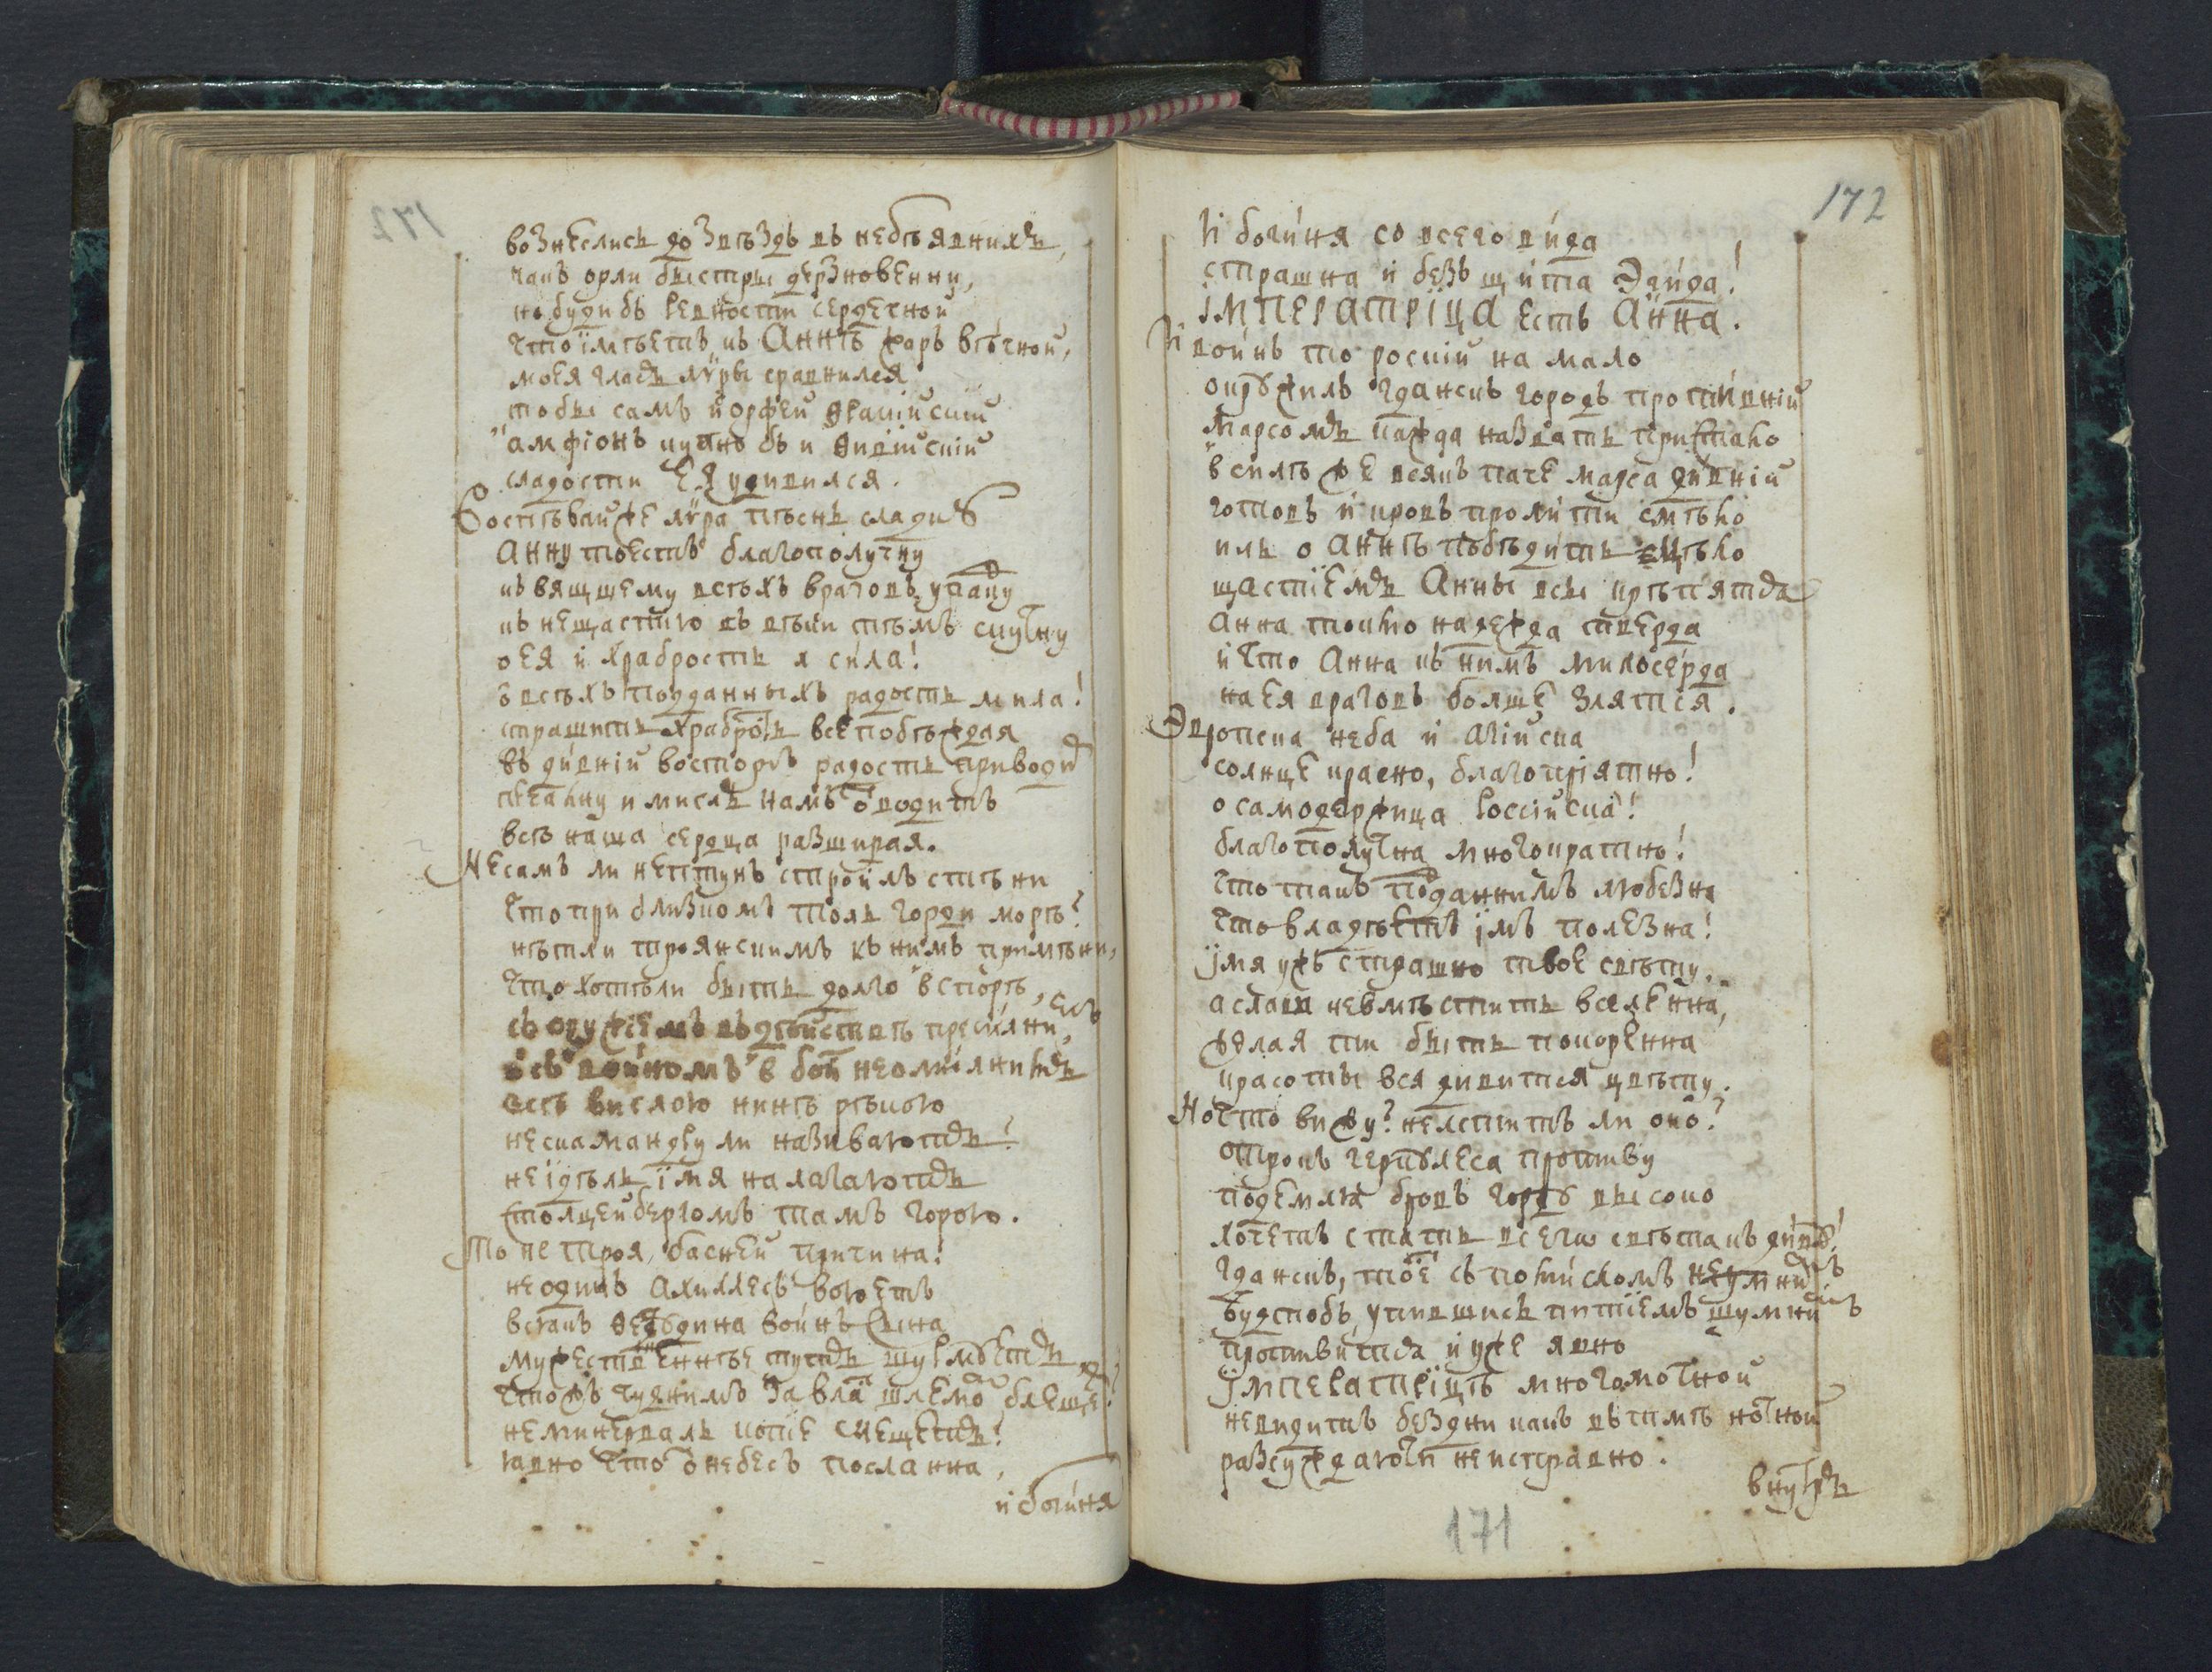 172
вознеслись до звѣздъ въ небѣ явнихъ,
какъ орли быстры дерзновенни,
но буди бъ ревности сердечной
что імѣетъ къ Аннѣ жаръ вѣчной,
моея гласъ лѵры сравнился
то бы самъ и орфей ѳракійскій
амфіонъ купно бъ и ѳивійскій
сладости Ея удивился.
Воспѣвай же лѵра пѣснь сладку
Анну тоесть благополучну
къ вящщему всѣхъ враговъ упадку
къ нещастію въ вѣки тѣмъ скучну
о ея и храбрость и сила!
о всѣхъ подданныхъ радость мила!
страшитъ храбрость все побѣждая
въ дивній восторгъ радость приводит
печалну и мисль намъ отводитъ
всѣ наша сердца разширая.
Не самъ ли нептунъ строилъ стѣни
что при близкомъ толь горди морѣ?
нѣтли троянскимъ къ нимъ примѣни,
что хотѣли быть долго въ спорѣ,
съ оружіемъ въ дѣйствѣ пресилнимъ,
и съ воиномъ в бои неомилнимъ
всѣ вислою нинѣ рѣкою
не скамандру ли називаютъ?
не ідѣль імя налагаютъ
столценбергомъ тамъ горою.
То не троя басней причина:
не одинъ Ахиллесъ воюетъ
всякъ Ѳетідина воинъ сына
мужественнѣе тутъ штурмуетъ
что жъ чуднимъ за власть шлемомъ блещетъ?
не минерваль копіе мещетъ?
явно что от небесъ посланна,
и богиня
172
И богиня со всего вида
страшна и безъ щита Эгида!
імператріца есть Анна.
И воинъ то роскій на мало
окружилъ гданскъ городъ противній
Марсомъ кажда назвать пристало
в силѣ же всякъ паче марса дивній
готовъ и кровь пролити смѣло
иль о Аннѣ побѣдить цѣло
щастіемъ Анны всы крѣпятся
Анна токмо надежда тверда
и что Анна къ нимъ милосерда
на ея враговъ болше злятся.
Эвропска неба и Азійска
солнце красно, благопріятно!
о самодержица Россійска!
благополучна многократно!
что такъ подданнимъ любезна
что владѣетъ імъ полезна!
імя ужъ страшно твое свѣту,
а слави невмѣститъ вселенна,
желая ти быть покоренна
красоты вся дивится цвѣту.
Но что вижу? нелститъ ли око?
отрокъ геркулеса противу
подемля бровъ горду високо
хочетъ стать всего свѣта къ диву!
гданскъ, тое съ помискомъ неумнимъ
будтобъ упившись питіемъ шумнимъ
противится и уже явно
імператріцѣ многомочной
невидитъ бездни какъ въ тмѣ ночной
разсуждаючи неисправно.
внутрь
171